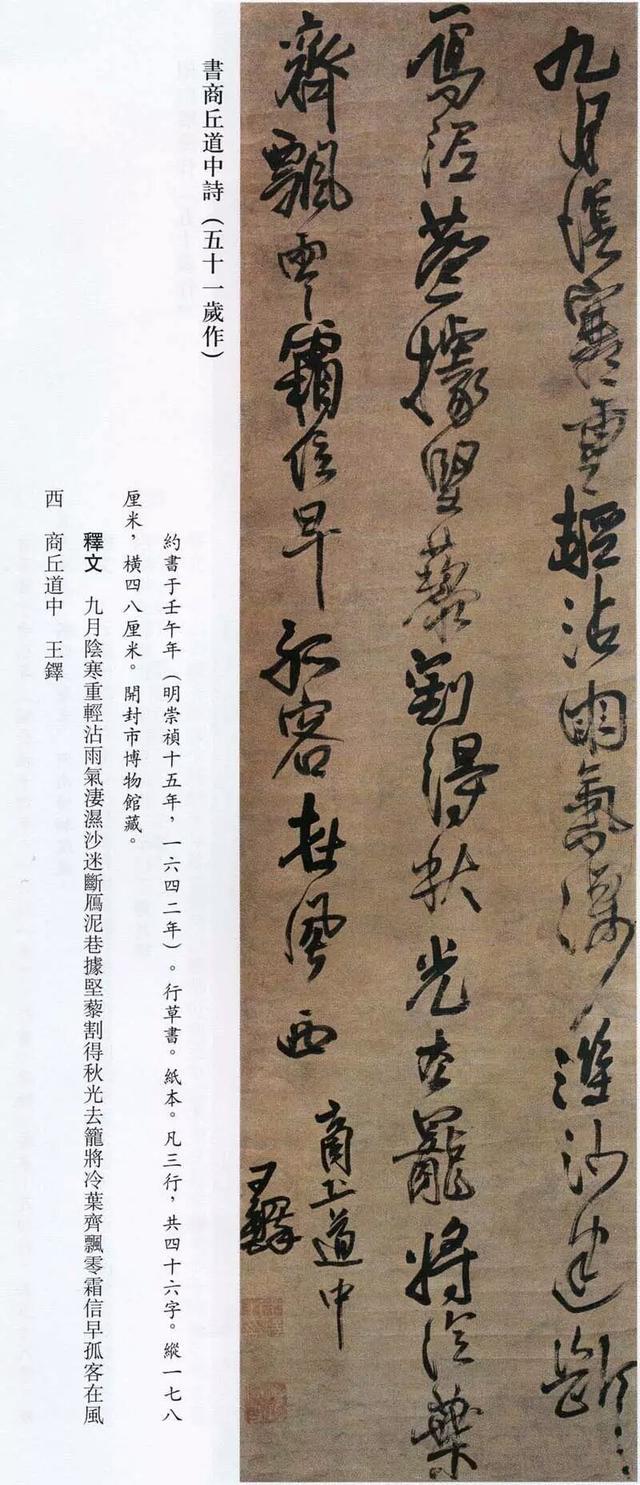 九月陰寒重輕沾雨氣淒濕沙迷斷
鴈泥巷據堅藜割得秋光去籠將冷葉
齊飄零霜信早孤客在風西
商丘道中
王鐸
書商丘道中詩(五十一歲作)
約書于壬午年(明崇禎十五年,一六四二年)。行草書。紙本。凡三行,共四十六字。縱一七八
厘米,橫四八厘米。開封市博物館藏。
釋文 九月陰寒重輕沾雨氣淒濕沙迷斷鴈泥巷據堅藜割得秋光去籠將冷葉齊飄零霜信早孤客在風
西 商丘道中 王鐸